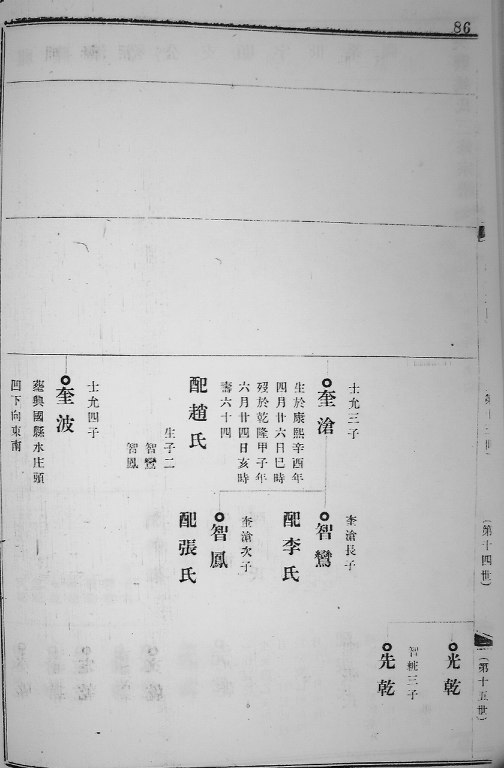 86
(第十四世)
(第十五世)
光乾
智毪三子
先乾
士允三子
奎滄
生於康熙辛酉年
四月廿六日巳時
歿於乾隆甲子年
六月廿四日亥時
壽六十四
配趙氏
生子二
智鸞
智鳳
奎滄長子
智鸞
配李氏
奎滄次子
智鳳
配張氏
士允四子
奎波
葬興國縣水庄頭
凹下向東南